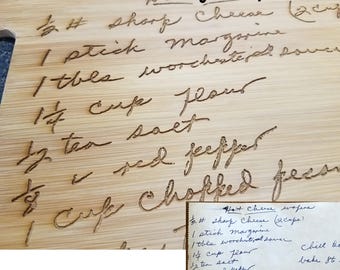 ½ # sharp Cheese (2 cups
1 stick Margarine
1 tbls worchestershire sauce
1¼ cup flour
½ tea salt
⅛ " red pepper
1 cup chopped pecan
Hot Cheese wafers
½ # sharp Cheese (2 cups)
1 stick Margarine
1 tbls worchestershire sauce
1¼ cup flour
½ tea salt
chill
bake